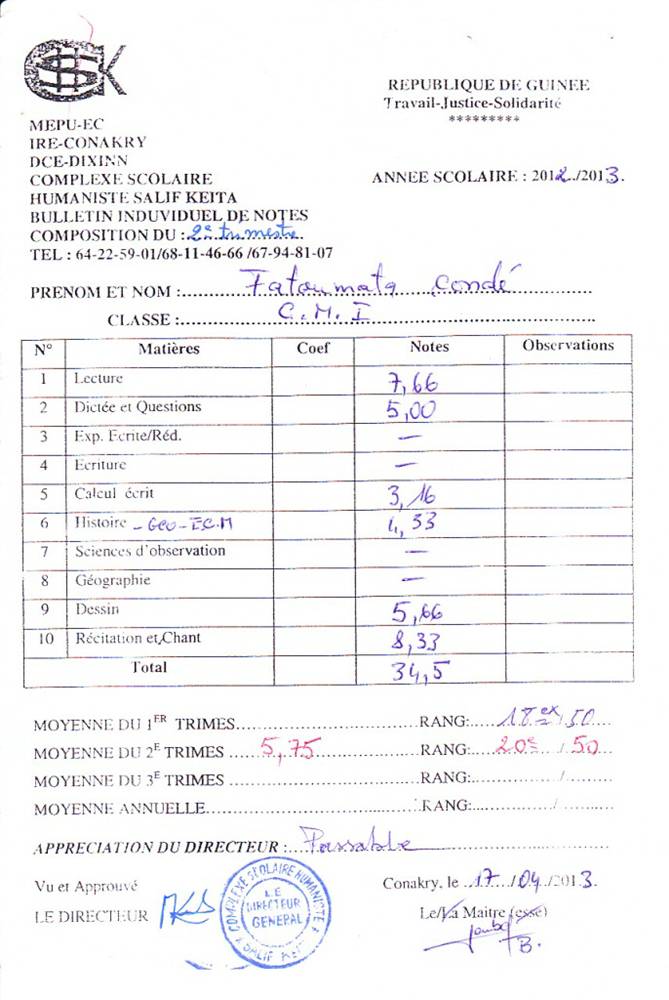 SK
REPUBLIQUE DE GUINEE
Travail-Justice-Solidarité
*********
MEPU-EC
IRE-CONAKRY
DCE-DIXINN
COMPLEXE SCOLAIRE
HUMANISTE SALIF KEITA
BULLETIN INDUVIDUEL DE NOTES
COMPOSITION DU : 2e trimestre
TEL : 64-22-59-01/68-11-46-66 /67-94-81-07
ANNEE SCOLAIRE : 2012./2013.
PRENOM ET NOM :.......Fatoumata Condé.......
CLASSE :.......C.M.I.......
N° Matières Coef Notes Observations
1 Lecture 7,66
2 Dictée et Questions 5,00
3 Exp. Ecrite/Réd. —
4 Ecriture —
5 Calcul écrit 3,16
6 Histoire - Geo - E.C.M 4,33
7 Sciences d'observation —
8 Géographie —
9 Dessin 5,66
10 Récitation et Chant 8,33
Total 34,5
MOYENNE DU 1ER TRIMES.......RANG:....18ex/50...
MOYENNE DU 2E TRIMES ....5,75.......RANG:....20e./50
MOYENNE DU 3E TRIMES .......RANG:......./.......
MOYENNE ANNUELLE.......RANG:......./.......
APPRECIATION DU DIRECTEUR :...Passable.......
Vu et Approuvé
LE DIRECTEUR
COMPLEXE SCOLAIRE HUMANISTE
LE DIRECTEUR GENERAL
SALIF KEITA
Conakry, le ..17../04./2013.
Le/La Maitre (esse)